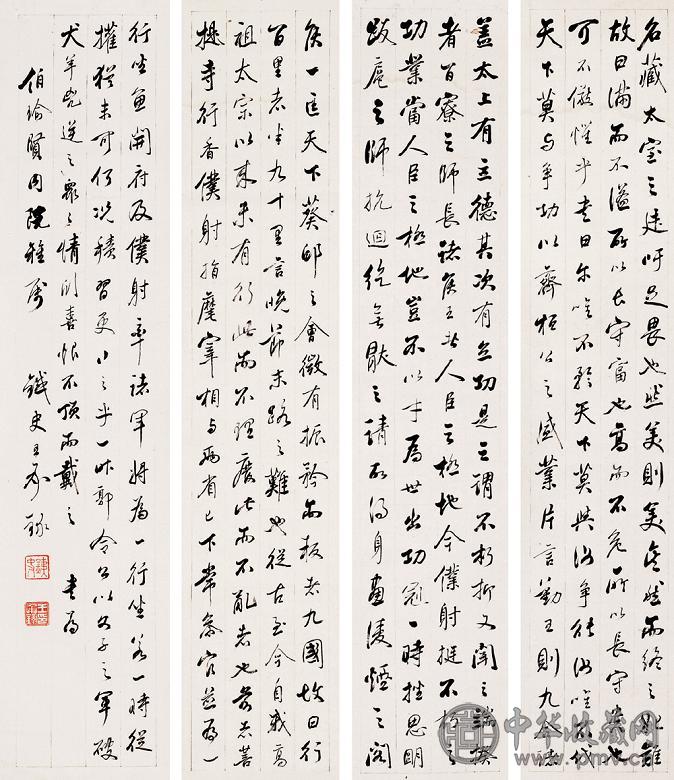 名藏太室之廷吁足畏也然美則美矣然而終之始難
故曰滿而不溢所以長守富也高而不危所以長守貴也
可不儆懼乎書曰尔唯不矜天下莫與汝争能汝唯不伐
天下莫与争功以齊桓公之盛業片言勤王則九合諸
蓋太上有立德其次有立功是之謂不朽抑又聞之端揆
者百寮之師長諸侯王者人臣之極地今僕射挺不朽之
功業當人臣之極地豈不以才為世出功冠一時挫思明
跋扈之師抗迴紇無猒之請故得身畫淩煙之閣
侯一匡天下葵邱之會微有振矜而叛者九國故曰行
百里者半九十里言晚節末路之難也從古至今自我高
祖太宗以來未有行此而不理廢此而不亂者也前者菩
提寺行香僕射指麾宰相与兩省已下常參官並為一
行坐魚開府及僕射率諸軍將為一行坐若一時從
權猶未可何況積習更行之乎一昨郭令公以父子之軍破
犬羊兇逆之眾之情欣喜恨不頂而戴之 書為
伯瑜賢同院雅屬 鐵史王
中华收藏网
www.pmv.cn